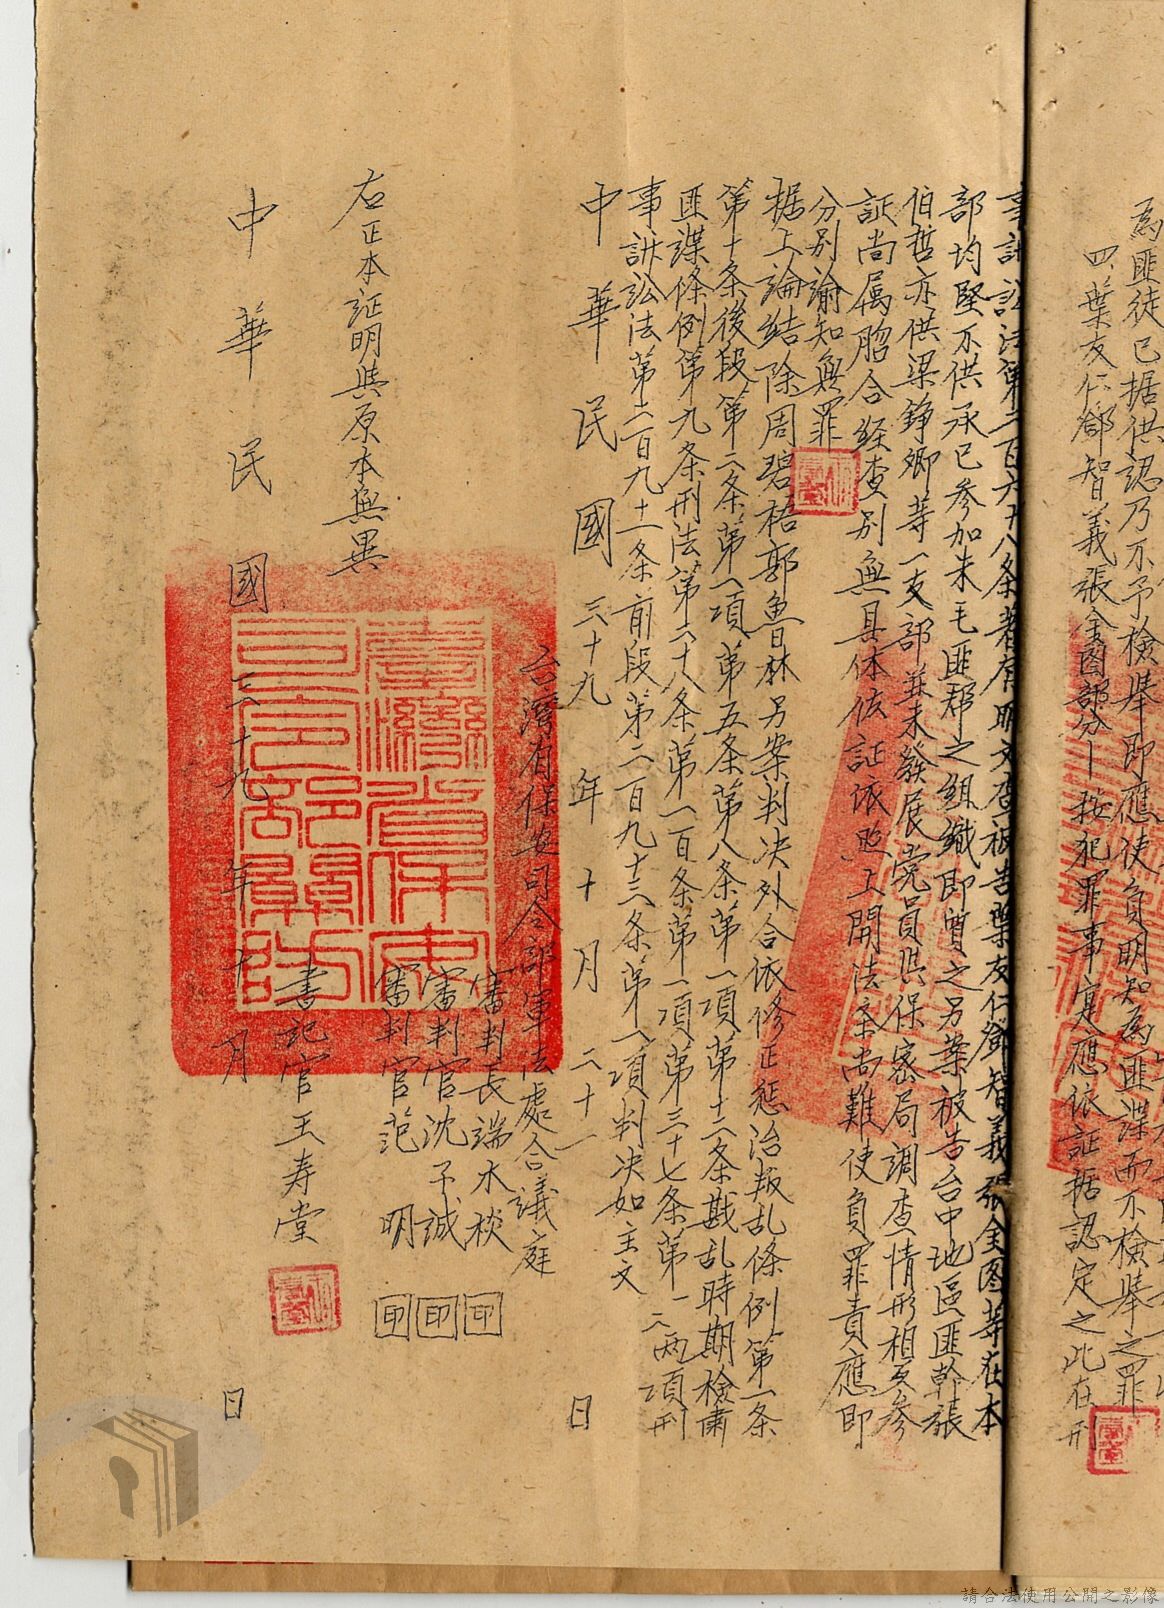 為匪徒已据供認乃不予檢舉即應使負明知為匪諜而不檢舉之罪
四、葉友仁鄧智義張金圖部分—按犯罪事實應依証据認定之此在刑
事訴訟法第二百六十八条著有明文本被告葉友仁鄧智義張金图等在本
部均堅不供承已参加朱毛匪幫之組織即質之另案被告台中地區匪幹張
伯哲亦供梁錚卿等一支部並未發展党員與保密局調查情形相互參
証尚属脗合経查別無具体佐証依照上開法条尚難使負罪責應即
分别諭知無罪
据上論結除周碧梧郭魯林另案判决外合依修正惩治叛乱條例第一条
第十条後段第二条第一項第五条第八条第一項第十二条戡乱時期檢肅
匪諜條例第九条刑法第六十八条第一百条第一項第三十七条第一二兩項刑
事訴訟法第二百九十一条前段第二百九十三条第一項判决如主文
中華民國三十九年十月二十一日
台灣省保安司令部軍法處合議庭
審判長端木棪 印
審判官沈予誠 印
審判官范明 印
右正本証明與原本無異
書記官王寿堂
中華民國三十九年十月 日
臺灣省保安司令部軍法
請合法使用公開之影像